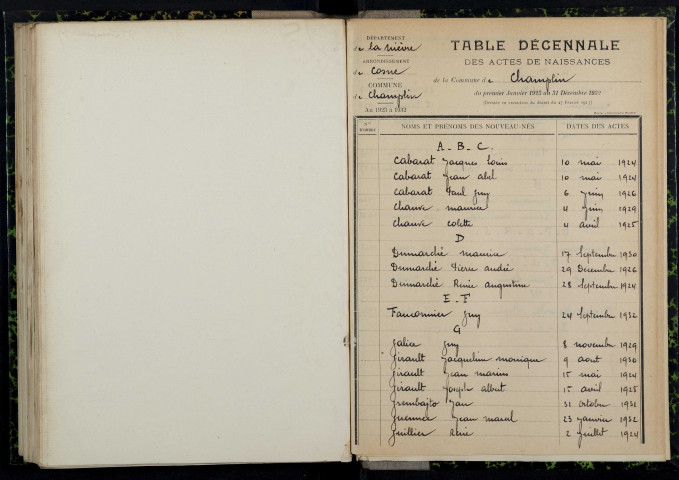 DÉPARTEMENT
de la nièvre
ARRONDISSEMENT
de Cosne
COMMUNE
de Champlin
An 1923 à 1932
TABLE DÉCENNALE
DES ACTES DE NAISSANCES
de la Commune de Champlin
du premier Janvier 1923 au 31 Décembre 1932
N°s D'ORDRE
NOMS ET PRÉNOMS DES NOUVEAU-NÉS
DATES DES ACTES
A - B - C.
Cabarat Jacques Louis 10 mai 1924
Cabarat Jean abel 10 mai 1924
Cabarat Paul Guy 6 Juin 1926
Chauve maurice 4 Juin 1929
Chauve Colette 4 avril 1925
D
Dumarché maurice 17 Septembre 1930
Dumarché Pierre andré 29 Décembre 1926
Dumarché Renée augustine 28 Septembre 1924
E - F
Fauconnier Guy 24 Septembre 1932
G
Galice Guy 8 novembre 1929
Girault Jacqueline monique 9 aout 1930
Girault Jean marius 15 mai 1924
Girault Joseph albert 15 avril 1925
Grembajto Jan 31 octobre 1931
Jean maral 23 Janvier 1932
Guillier René 2 Juillet 1924